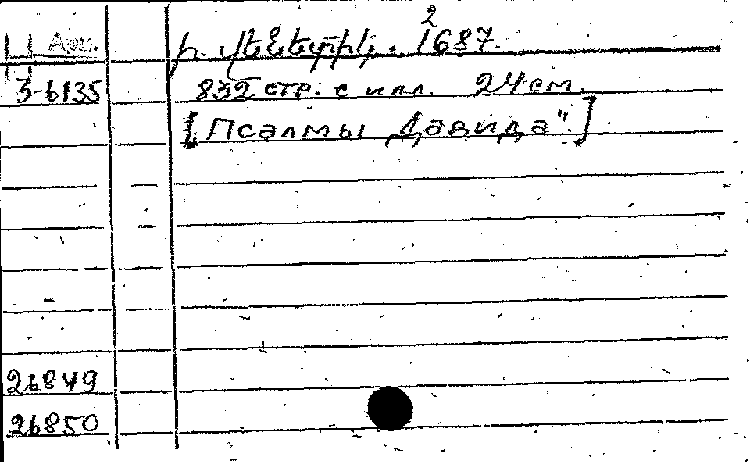 Ц Арм. ի վենետիկ. 1687.
2
3-6135 832 стр. с илл. 24 см.
[„Псалмы Давида"]
26849
26850